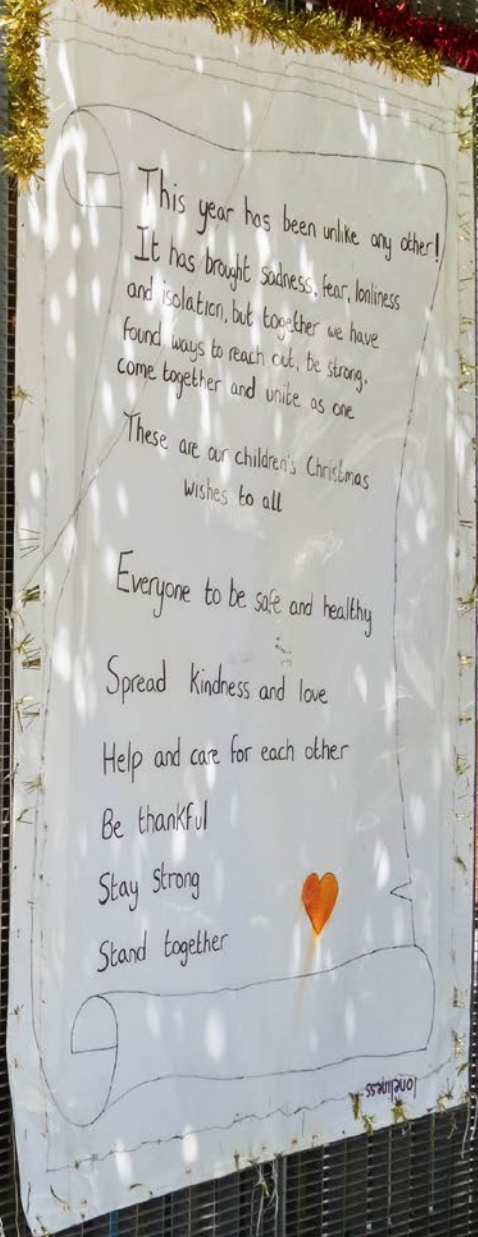 This year has been unlike any other!
It has brought sadness, fear, lonliness
and isolation, but together we have
found ways to reach out, be strong,
come together and unite as one
These are our children's Christmas
wishes to all
Everyone to be safe and healthy
Spread kindness and love
Help and care for each other
Be thankful
Stay Strong
Stand together
loneliness